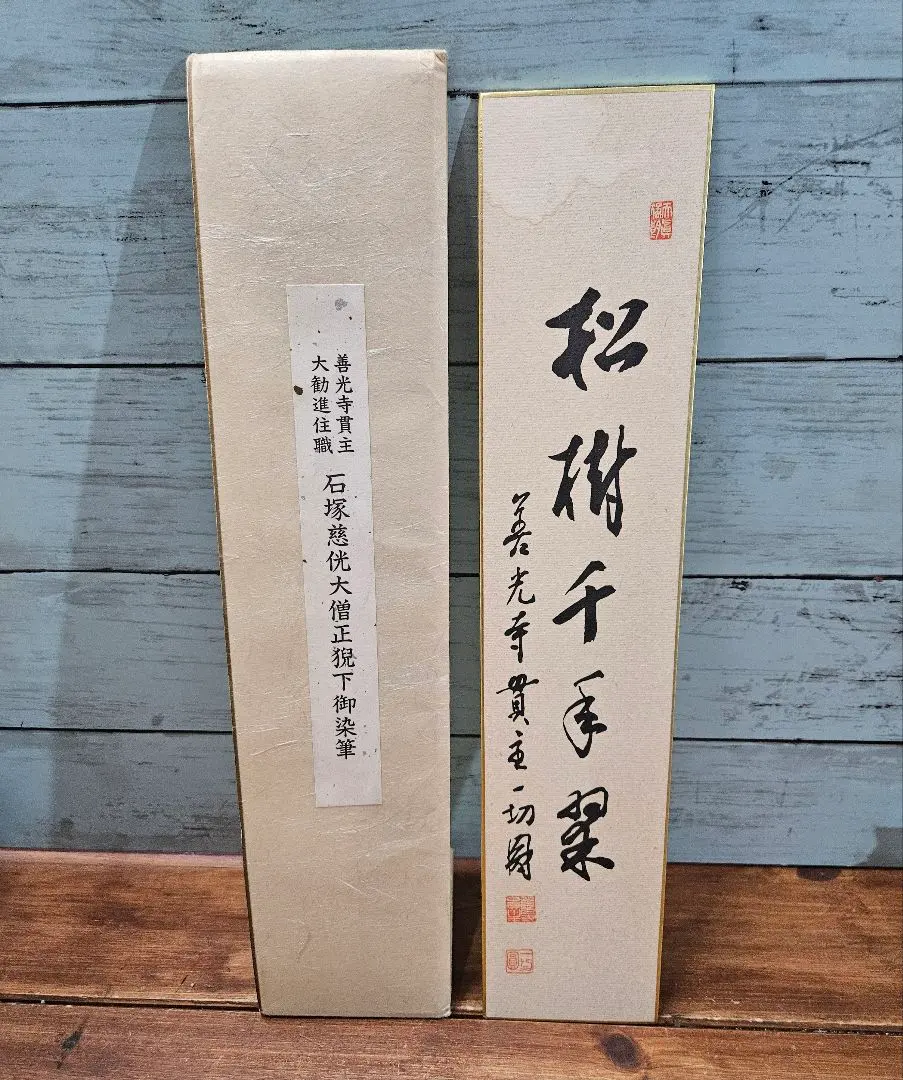 善光寺貫主
大勧進住職
石塚慈侊大僧正猊下御染筆
松樹千年翠
善光寺貫主一切圓